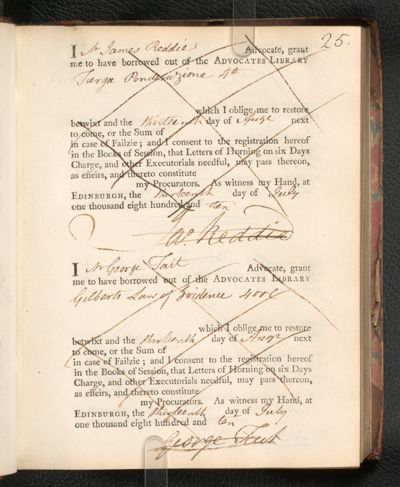 25.
I Mr James Reddie Advocate, grant
me to have borrowed out of the ADVOCATES LIBRARY
Targa Ponderazione 4to
which I oblige me to restore
betwixt and the thirteenth day of Augt next
to come, or the Sum of
in case of Failzie; and I consent to the registration hereof
in the Books of Session, that Letters of Horning on six Days
Charge, and other Executorials needful, may pass thereon,
as effeirs, and thereto constitute
my Procurators. As witness my Hand, at
EDINBURGH, the thirteenth day of July
one thousand eight hundred and ten
Reddie
I Mr George Tait Advocate, grant
me to have borrowed out of the ADVOCATES LIBRARY
Gilberts Law of Evidence
which I oblige me to restore
betwixt and the thirteenth day of Augt next
to come, or the Sum of
in case of Failzie; and I consent to the registration hereof
in the Books of Session, that Letters of Horning on six Days
Charge, and other Executorials needful, may pass thereon,
as effeirs, and thereto constitute
my Procurators. As witness my Hand, at
EDINBURGH, the thirteenth day of July
one thousand eight hundred and ten
George Tait